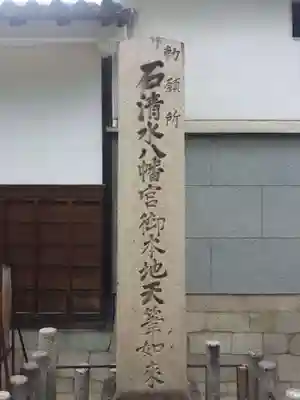 勅願所
石清水八幡宮御本地天筆如来